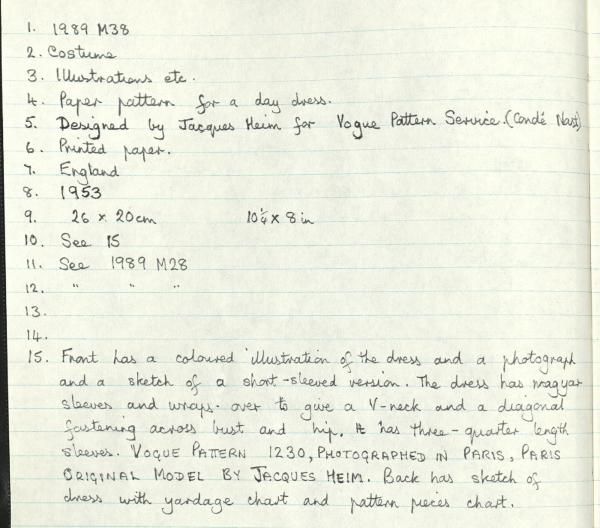 1. 1989 M38
2. Costume
3. Illustrations etc.
4. Paper pattern for a day dress.
5. Designed by Jacques Heim for Vogue Pattern Service. (Condé Nast)
6. Printed paper.
7. England
8. 1953
9. 26 x 20cm 10¼ x 8 in
10. See 15
11. See 1989 M28
12. " " "
13.
14.
15. Front has a coloured illustration of the dress and a photograph
and a sketch of a short-sleeved version. The dress has magyar
sleeves and wraps over to give a V-neck and a diagonal
fastening across bust and hip. It has three-quarter length
sleeves. VOGUE PATTERN 1230, PHOTOGRAPHED IN PARIS, PARIS
ORIGINAL MODEL BY JACQUES HEIM. Back has sketch of
dress with yardage chart and pattern pieces chart.